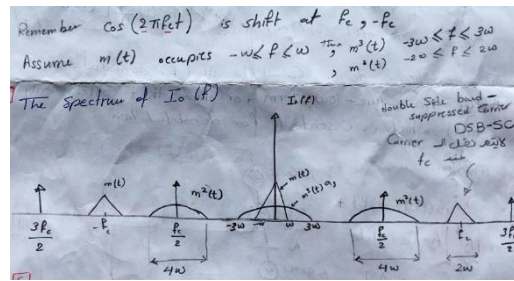 Remember cos (2πfct) is shift at fc, -fc
Assume m(t) occupies -w≤f≤w Then, m³(t) -3w≤f≤3w
, m²(t) -2w≤f≤2w
The Spectrum of Io(f)
Io(f)
double side band -
suppressed carrier
DSB-SC
Carrier
fc
m(t)
m(t)
m²(t)
m³(t) a₃
m²(t)
3fc/2
-fc
fc/2
-3w
-w
w
3w
fc/2
fc
3f
4w
4w
2w